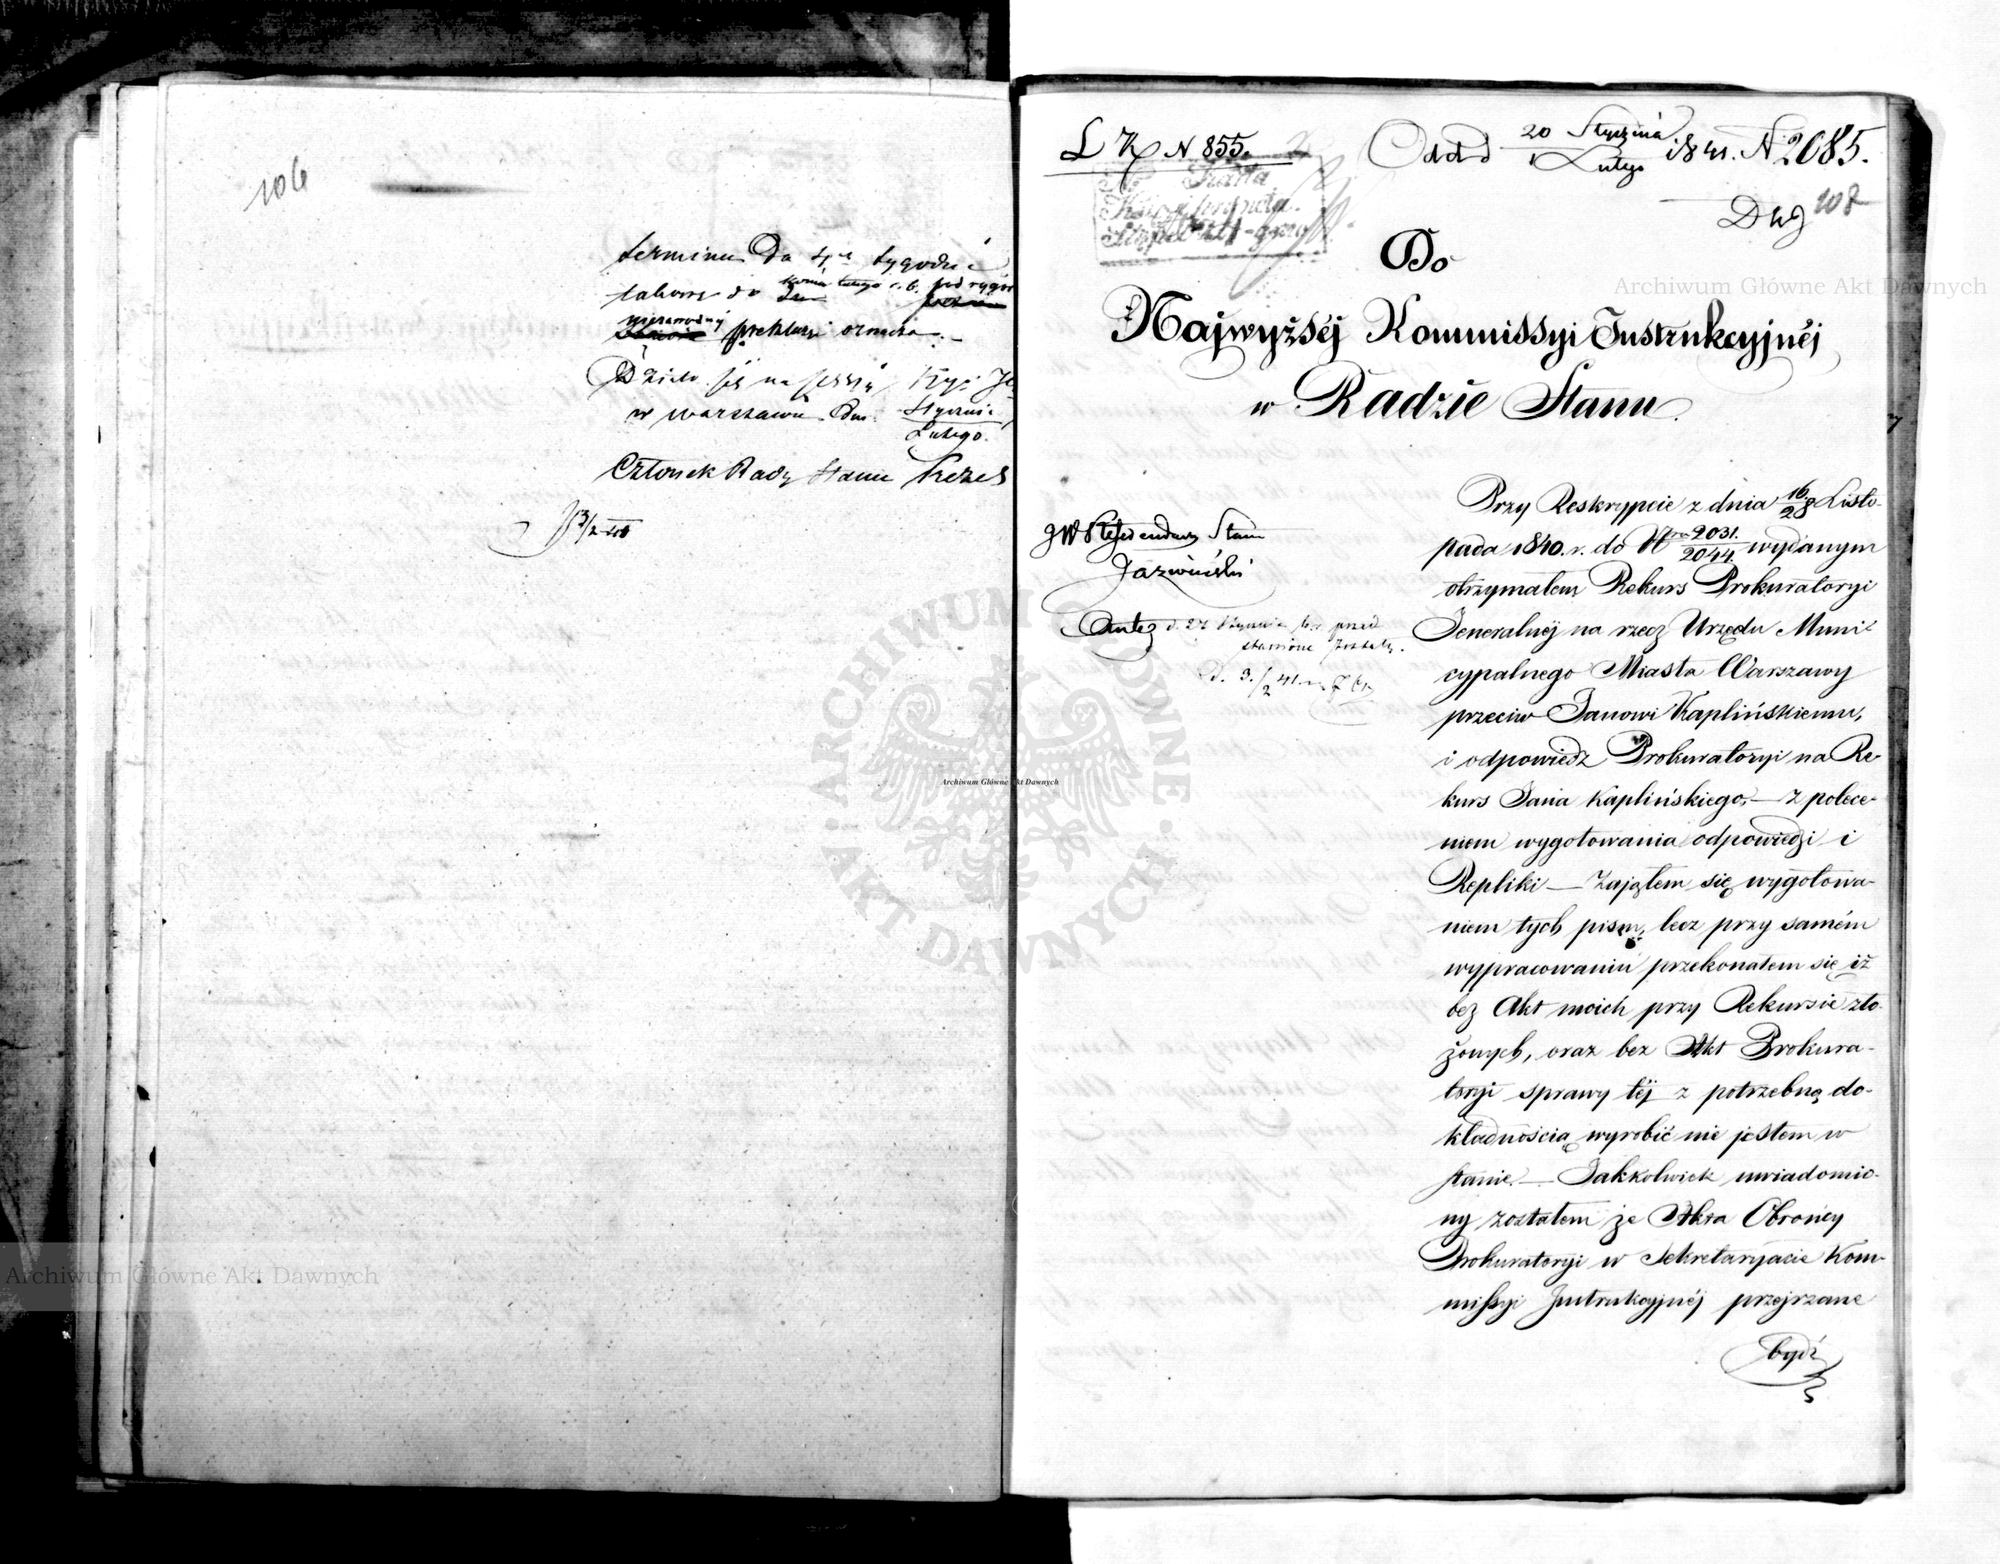 106
terminu Da 4ch tygodni
końca lutego r. b. pod rygor
prekluzyi oznacza.
Działo się na sessyi
w Warszawie Dnia Stycznia
Lutego.
Członek Rady Stanu Prezes
L K N 855.
Odd d 20 Stycznia 1841. N 2085.
1 Lutego
108
Do
Najwyższéj Kommissyi Instrukcyjnéj
w Radzie Stanu
JW Referendarz Stanu
Jazwiński
d. 27 Stycznia
stawione zostały.
D. 3/2 41.
Przy Reskrypcie z dnia 16/28 Listo-
pada 1840. r. do Nra 2031./2044 wydanym
otrzymałem Rekurs Prokuratoryi
Jeneralnéj na rzecz Urzędu Muni-
cypalnego Miasta Warszawy
przeciw Janowi Kaplińskiemu,
i odpowiedz Prokuratoryi na Re-
kurs Jana Kaplińskiego, — z polece-
niem wygotowania odpowiedzi i
Repliki — Zająłem się wygotowa-
niem tych pism, lecz przy samém
wypracowaniu przekonałem się iż
bez Akt moich przy Rekursie zło-
żonych, oraz bez Akt Prokura-
toryi sprawy téj z potrzebną do-
kładnością wyrobić nie jestem w
stanie. — Jakkolwiek uwiadomio-
ny zostałem że Akta Obrończy
Prokuratoryi w Sekretaryacie Kom-
missyi Instrukcyjnéj przejrzane
bydź
Archiwum Główne Akt Dawnych
Archiwum Główne Akt Dawnych
Archiwum Główne Akt Dawnych
ARCHIWUM GŁÓWNE AKT DAWNYCH